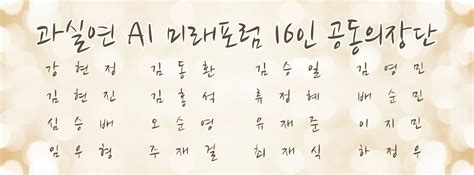 과실연 AI 미래포럼 16인 공동의장단
강현정 김동환 김승일 김영민
김현진 김홍석 류정혜 배순민
심승배 오순영 유재준 이지민
임우형 주재걸 최재식 하정우